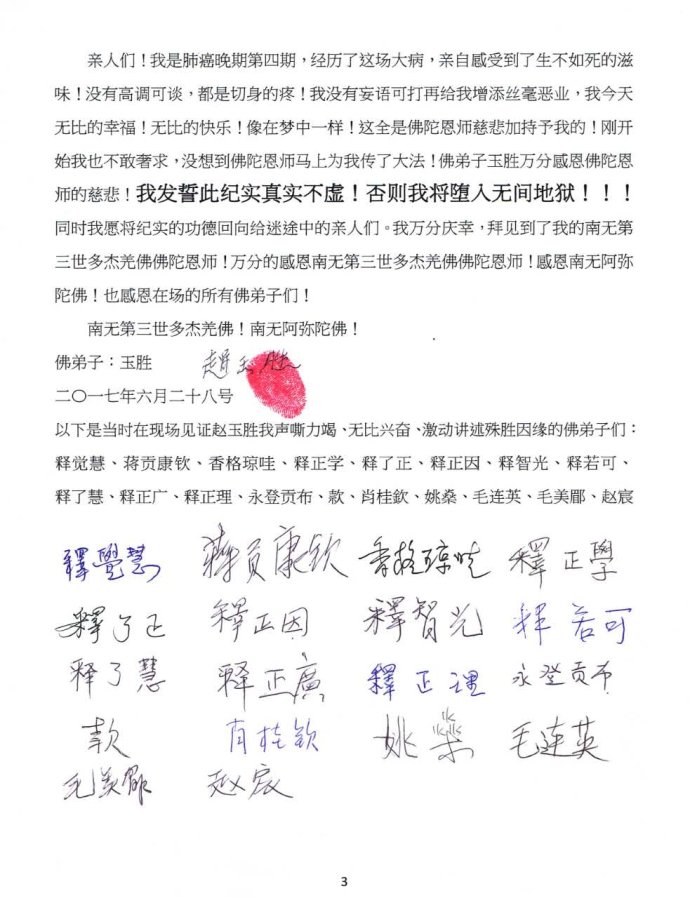 亲人们！我是肺癌晚期第四期，经历了这场大病，亲自感受到了生不如死的滋
味！没有高调可谈，都是切身的疼！我没有妄语可打再给我增添丝毫恶业，我今天
无比的幸福！无比的快乐！像在梦中一样！这全是佛陀恩师慈悲加持予我的！刚开
始我也不敢奢求，没想到佛陀恩师马上为我传了大法！佛弟子玉胜万分感恩佛陀恩
师的慈悲！我发誓此纪实真实不虚！否则我将堕入无间地狱！！！
同时我愿将纪实的功德回向给迷途中的亲人们。我万分庆幸，拜见到了我的南无第
三世多杰羌佛佛陀恩师！万分的感恩南无第三世多杰羌佛佛陀恩师！感恩南无阿弥
陀佛！也感恩在场的所有佛弟子们！
南无第三世多杰羌佛！南无阿弥陀佛！
佛弟子：玉胜 趙玉胜
二〇一七年六月二十八号
以下是当时在现场见证赵玉胜我声嘶力竭、无比兴奋、激动讲述殊胜因缘的佛弟子们：
释觉慧、蒋贡康钦、香格琼哇、释正学、释了正、释正因、释智光、释若可、
释了慧、释正广、释正理、永登贡布、款、肖桂欽、姚燊、毛连英、毛美郿、赵宸
釋覺慧 蒋贡康钦 香格琼哇 釋正學
釋了正 釋正因 釋智光 释若可
释了慧 释正廣 釋正理 永登贡布
款 肖桂钦 姚燊 毛连英
毛美郿 赵宸
3